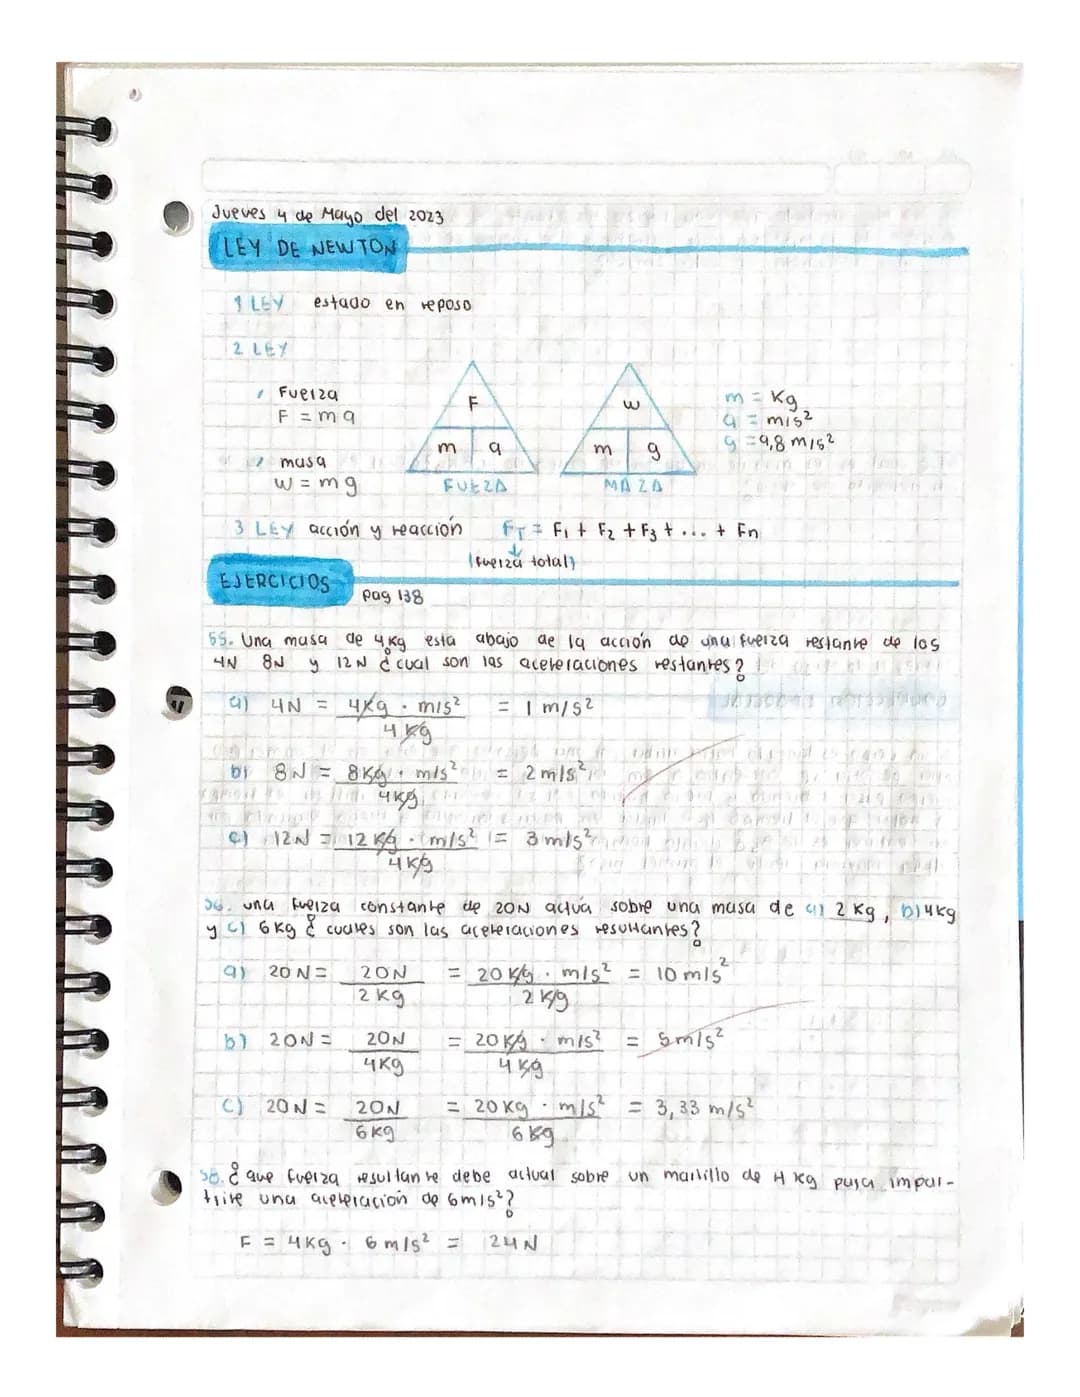 Jueves 4 de Mayo del 2023
LEY DE NEWTON
1 LEY estado en reposo
2 LEY
Fuerza
F = m a
masa
W = m g
F
m a
FUEZA
w
m g
MAZA
m = Kg
a = m/s²
g = 9,8 m/s²
3 LEY acción y reacción FT = F1 + F2 + F3 + ... + Fn
(fuerza total)
EJERCICIOS
pag 138
55. Una masa de 4Kg esta abajo de la acción de una fuerza restante de los
4N 8N y 12N ¿cual son las aceleraciones restantes?
a) 4N = 4Kg · m/s² = 1 m/s²
4 Kg
b) 8N = 8Kg · m/s² = 2 m/s²
4Kg
c) 12N = 12 Kg · m/s² = 3 m/s²
4 Kg
56. una fuerza constante de 20N actúa sobre una masa de a) 2 Kg, b) 4Kg
y c) 6Kg ¿ cuales son las aceleraciones resultantes?
a) 20N = 20N = 20 Kg · m/s² = 10 m/s²
2 Kg 2 Kg
b) 20N = 20N = 20 Kg · m/s² = 5 m/s²
4Kg 4 Kg
c) 20N = 20N = 20 Kg · m/s² = 3,33 m/s²
6Kg 6 Kg
58. ¿ que fuerza resultante debe actuar sobre un martillo de 4 Kg para impar-
tirle una aceleración de 6m/s²?
F = 4Kg · 6 m/s² = 24N